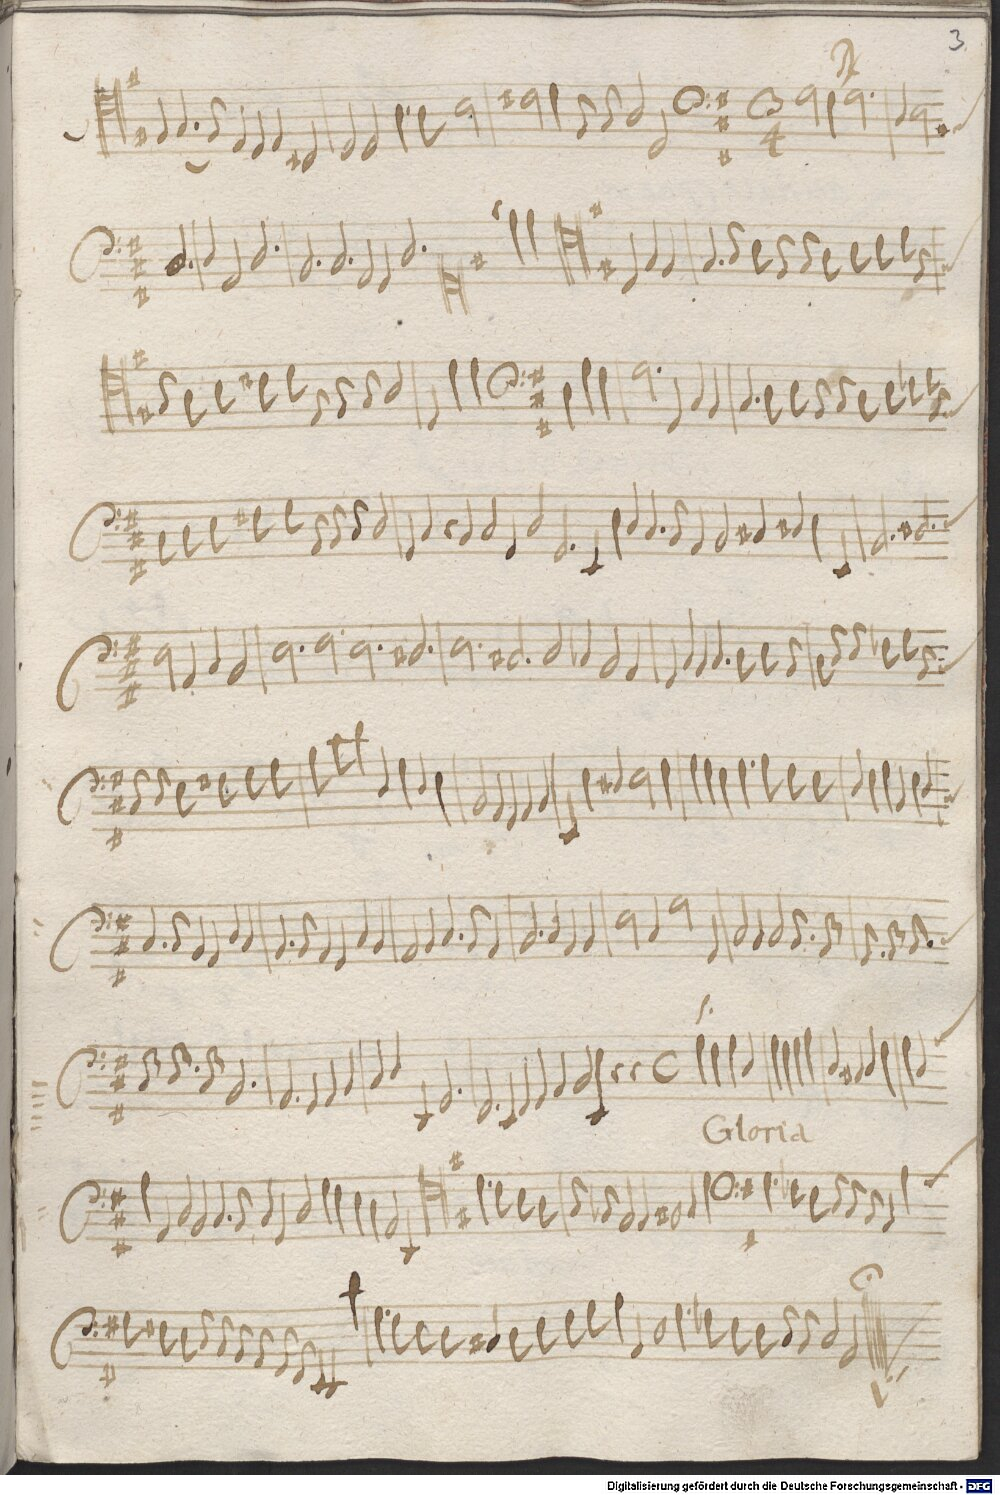 3
3
4
Gloria
Digitalisierung gefördert durch die Deutsche Forschungsgemeinschaft - DFG